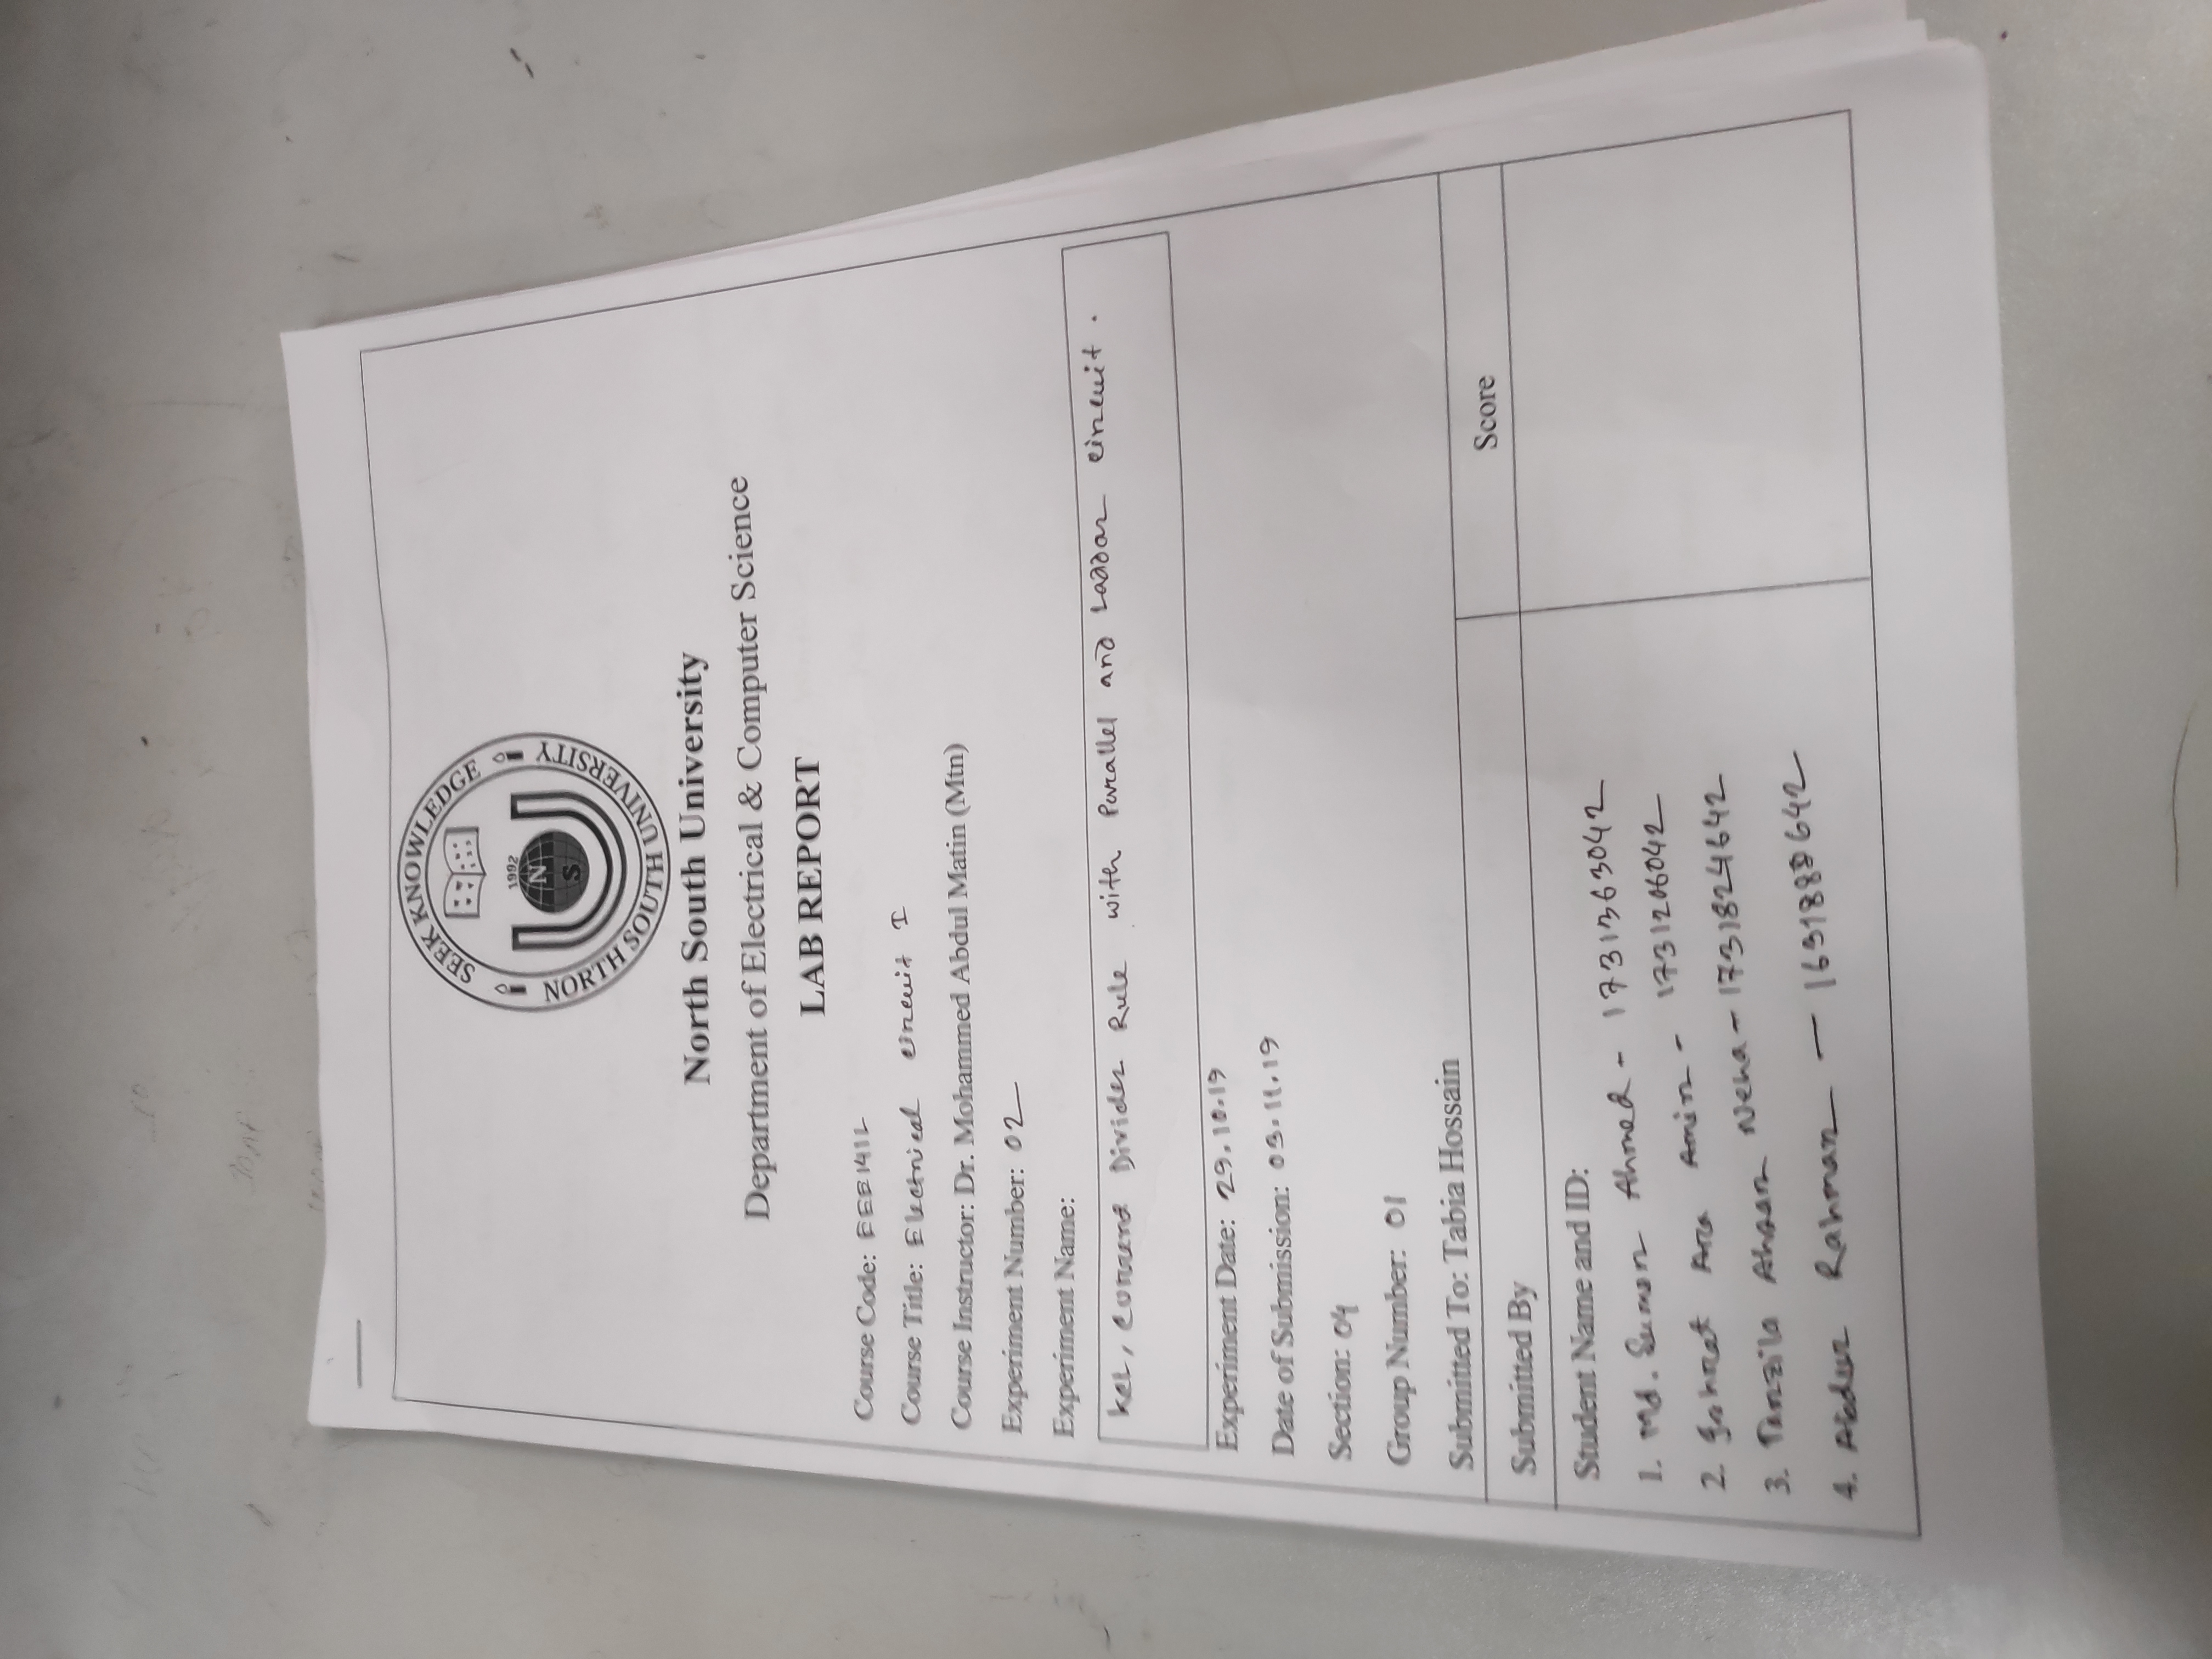 SEEK KNOWLEDGE
1992
N
S
NORTH SOUTH UNIVERSITY
North South University
Department of Electrical & Computer Science
LAB REPORT
Course Code: EEE141L
Course Title: Electrical Circuit I
Course Instructor: Dr. Mohammed Abdul Matin (Mtn)
Experiment Number: 02
Experiment Name:
KCL, Current Divider Rule with Parallel and Laddar Circuit.
Experiment Date: 29.10.19
Date of Submission: 03.11.19
Section: 04
Group Number: 01
Submitted To: Tabia Hossain
Submitted By
Score
Student Name and ID:
1. Md. Sumon Ahmed - 1731363042
2. Ara Amin - 1731206042
3. Tanzila Ahsan Neha - 1731824642
4. Abdur Rahman -